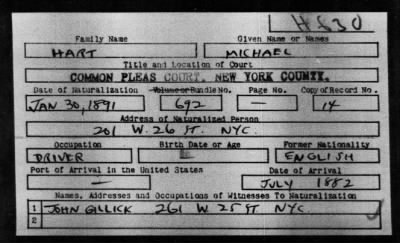 H630
Family Name Given Name or Names
HART MICHAEL
Title and Location of Court
COMMON PLEAS COURT, NEW YORK COUNTY.
Date of Naturalization Volume or Bundle No. Page No. Copy of Record No.
JAN 30, 1891 692 — 14
Address of Naturalized Person
201 W. 26 ST. NYC.
Occupation Birth Date or Age Former Nationality
DRIVER ENGLISH
Port of Arrival in the United States Date of Arrival
— JULY 1882
Names, Addresses and Occupations of Witnesses To Naturalization
1 JOHN GILLICK 261 W 25 ST NYC
2